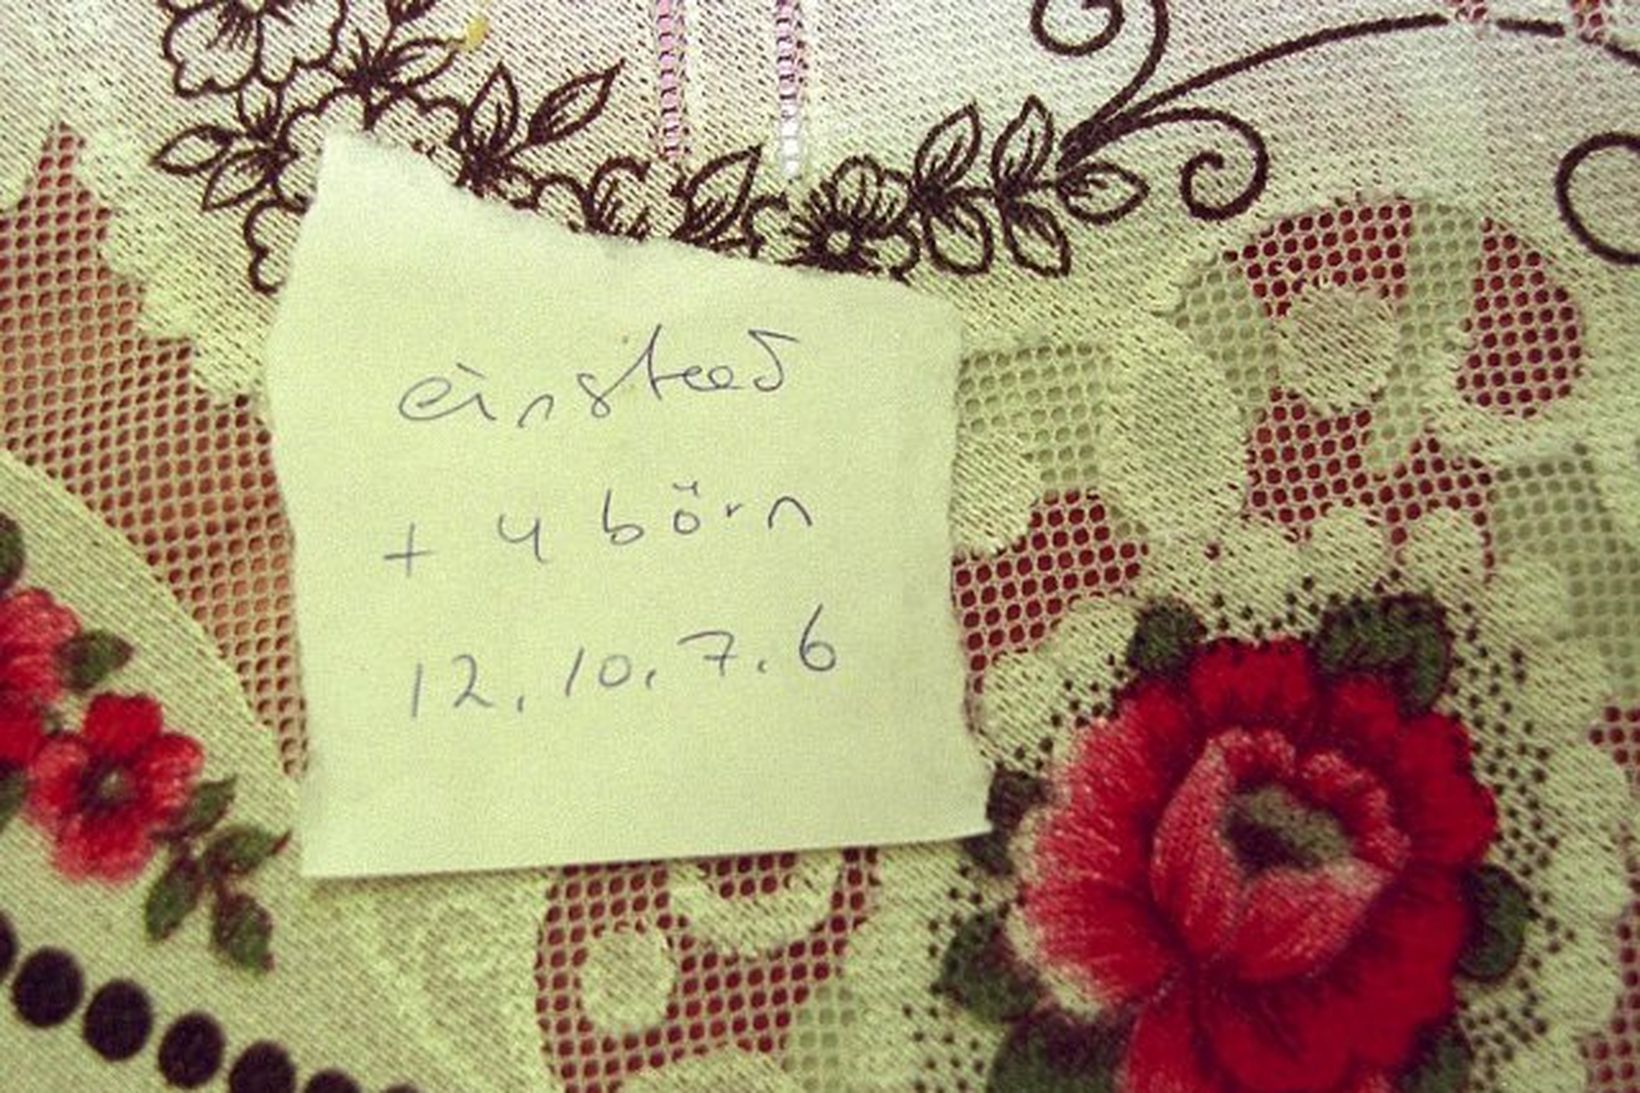 einstæð
+ 4 börn
12, 10, 7, 6